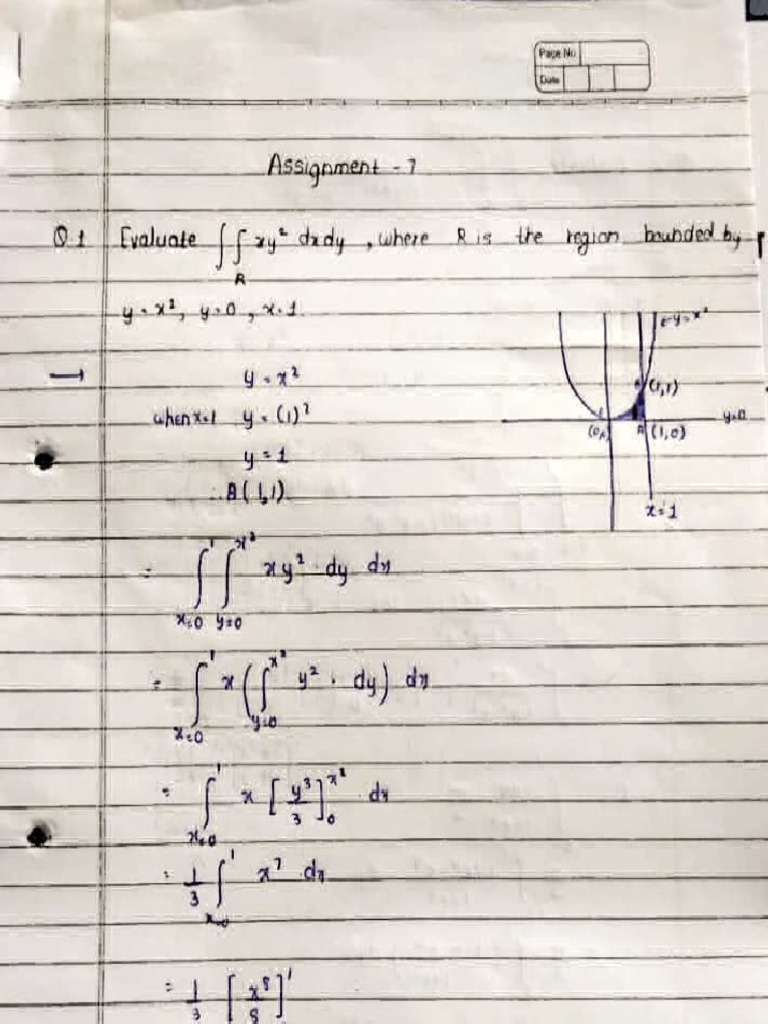 Page No
Date
Assignment - 7
Q.1 Evaluate ∫∫_R xy² dxdy, where R is the region bounded by
y = x², y = 0, x = 1.
→ y = x²
when x=1 y = (1)²
y = 1
∴ B(1,1)
y = x²
(1,1)
y=0
(1,0)
x=1
= ∫_{x=0}^{1} ∫_{y=0}^{x²} xy² · dy dx
= ∫_{x=0}^{1} x (∫_{y=0}^{x²} y² · dy) dx
= ∫_{x=0}^{1} x [y³/3]_0^{x²} dx
= 1/3 ∫_{x=0}^{1} x⁷ dx
= 1/3 [x⁸/8]^1